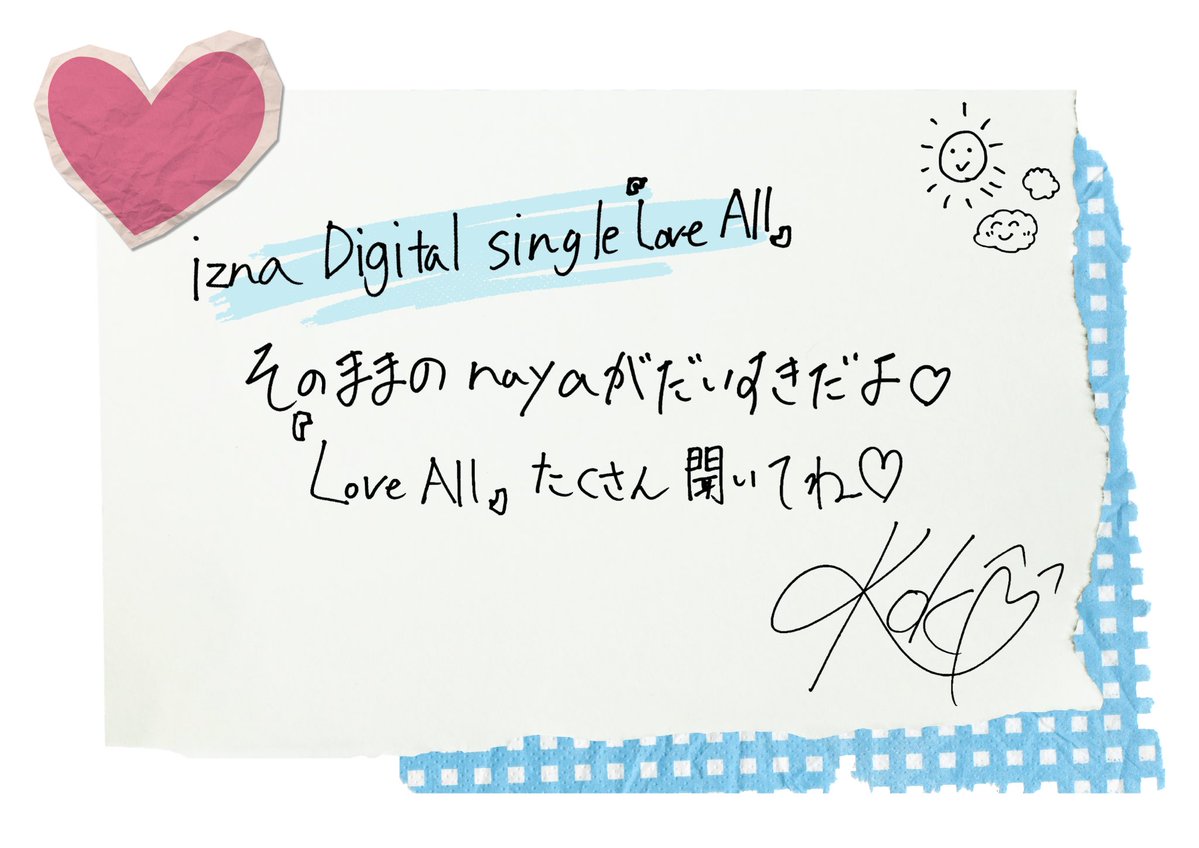 izna Digital single『Love All』
そのままのnayaがだいすきだよ♡
『Love All』たくさん聞いてね♡